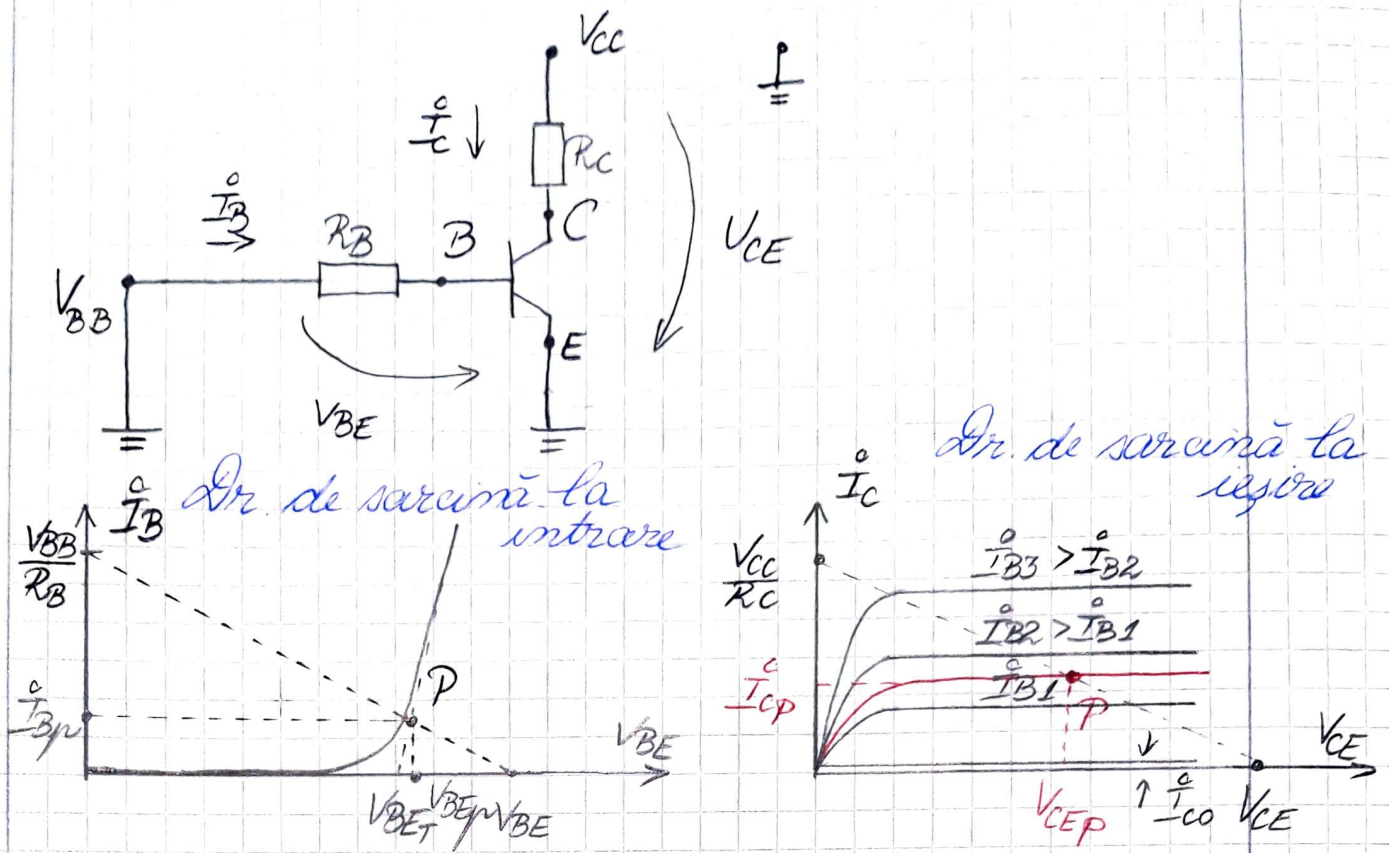 VCC
IC
RC
C
IB
RB
B
VCE
VBB
E
VBE
Dr. de sarcină la
intrare
IB
VBB
RB
P
IBp
VBE
VBET VBEp VBE
Dr. de sarcină la
ieșire
IC
VCC
RC
IB3 > IB2
IB2 > IB1
IB1
ICp
P
VCE
VCEp
ICO VCE